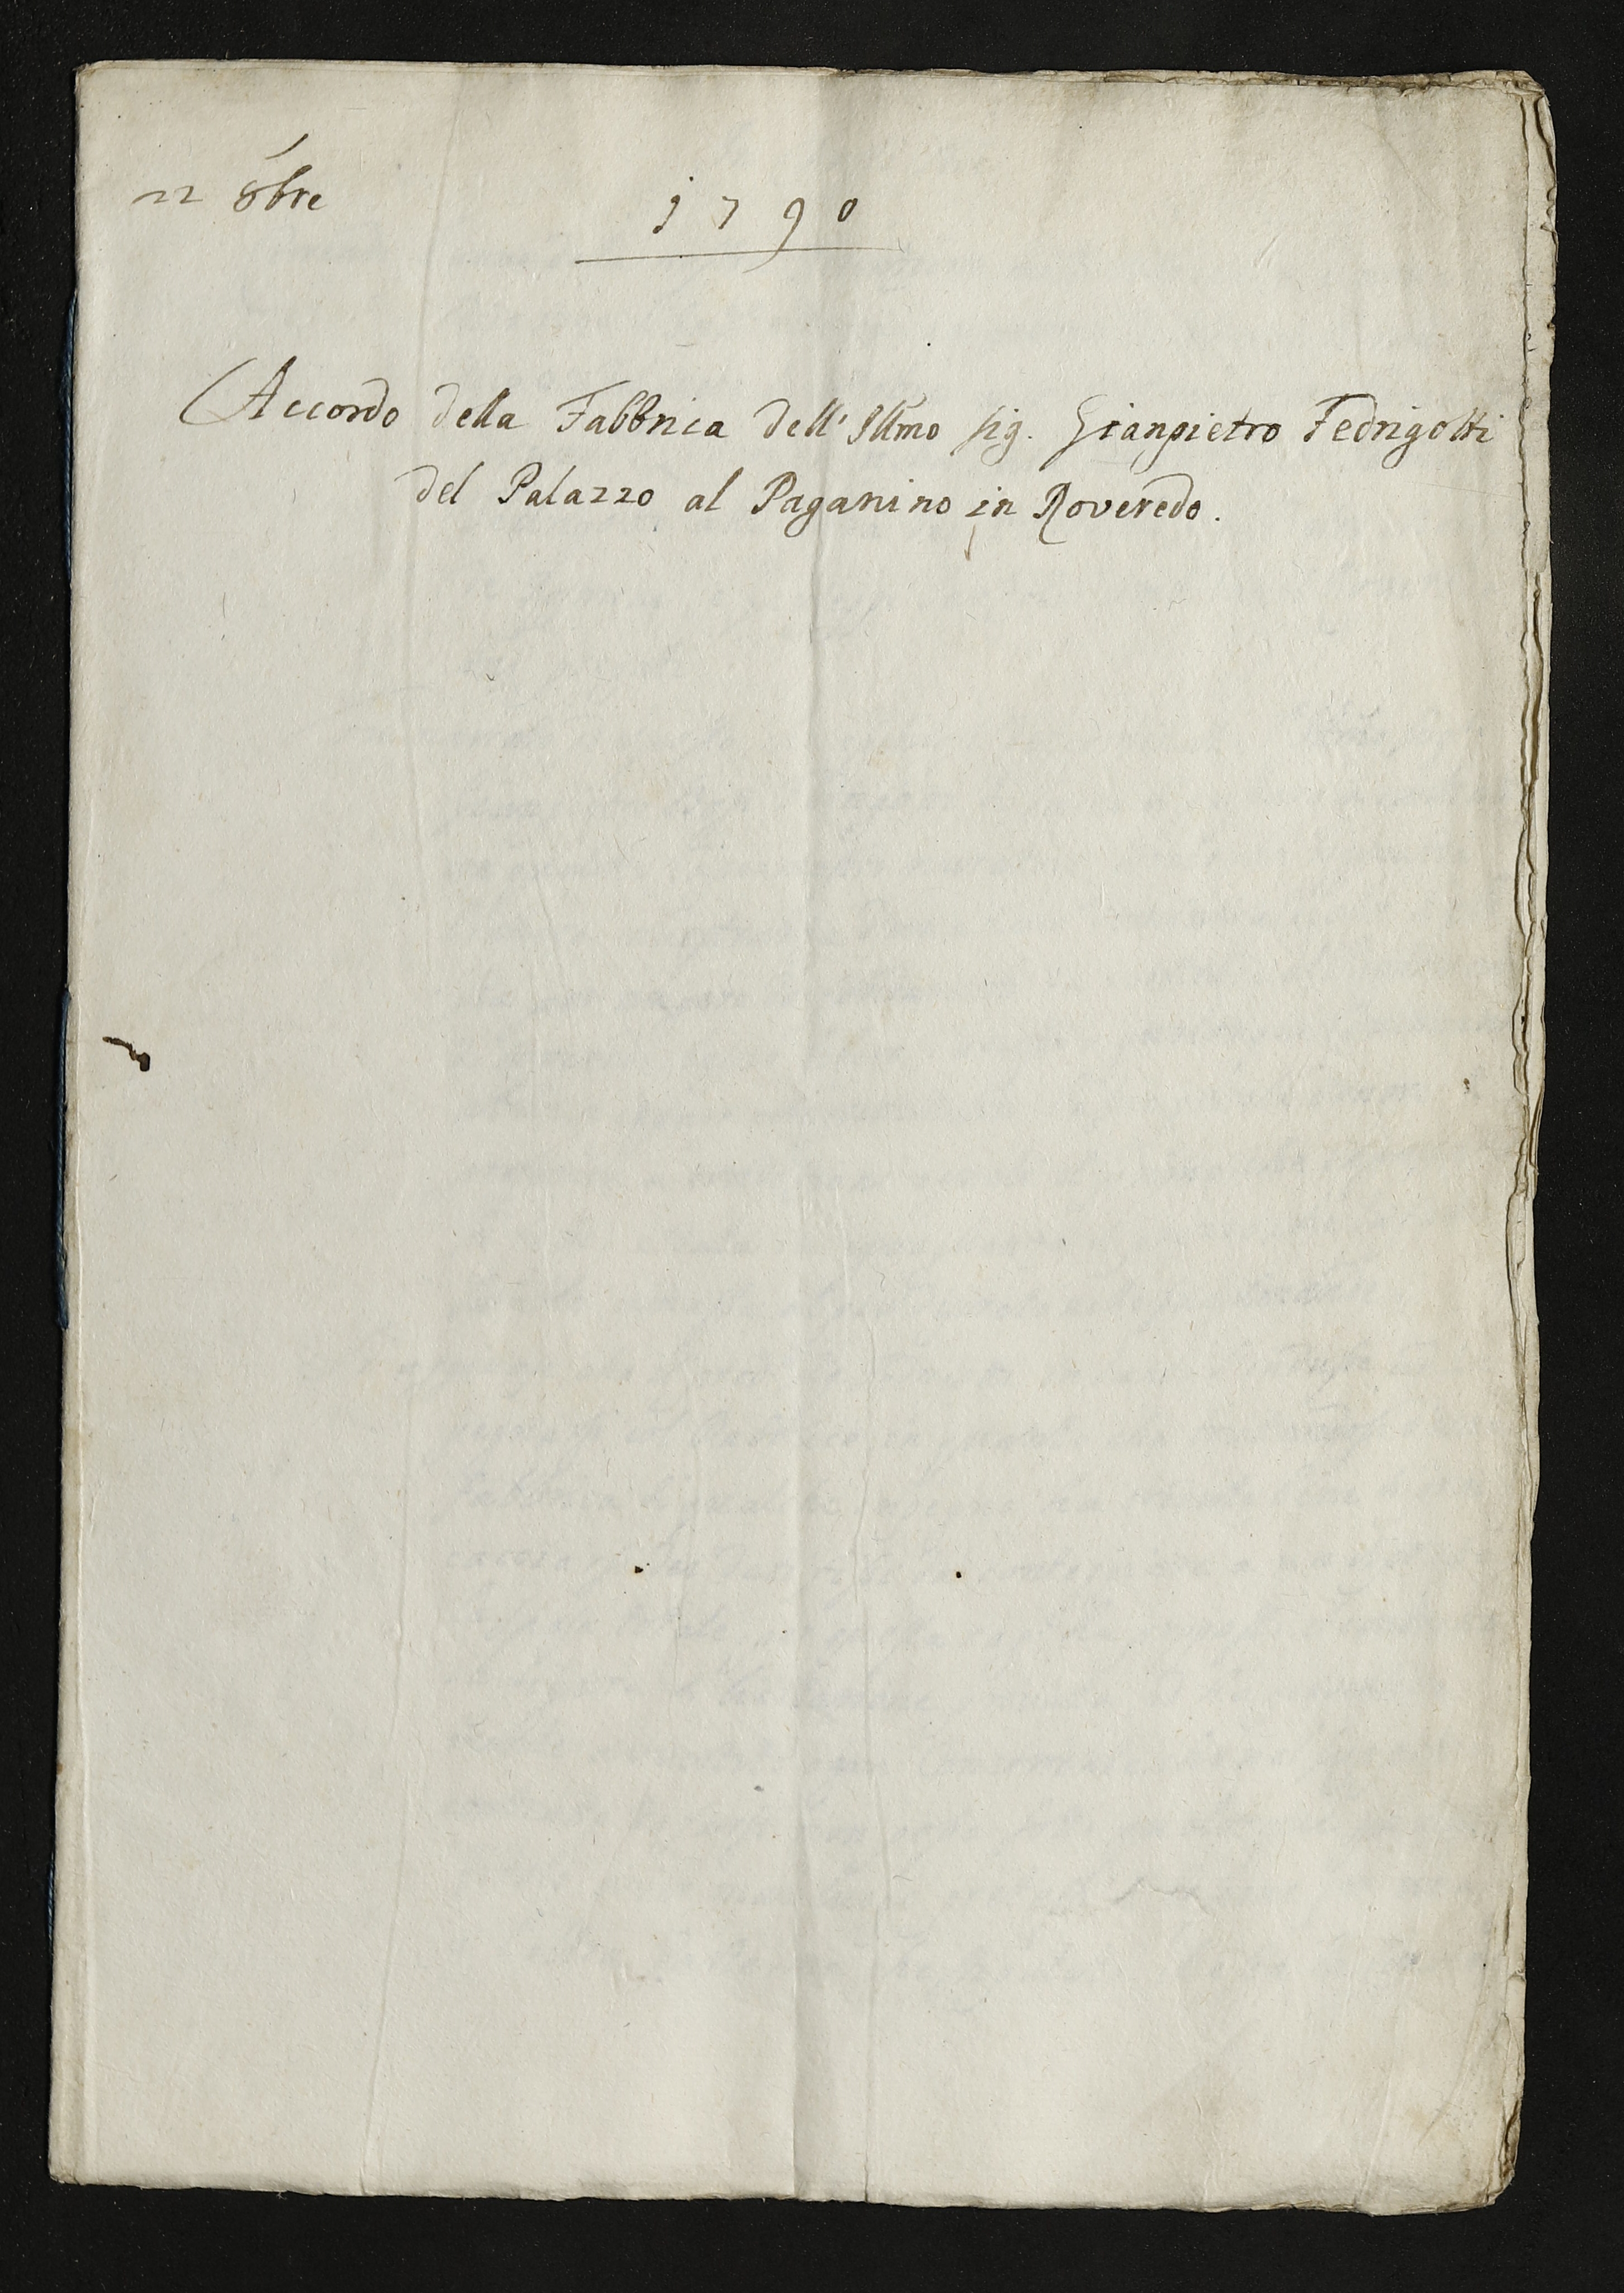 22 8bre
1790
Accordo della Fabbrica dell' Illmo sig. Gianpietro Fedrigotti
del Palazzo al Paganino in Roveredo.